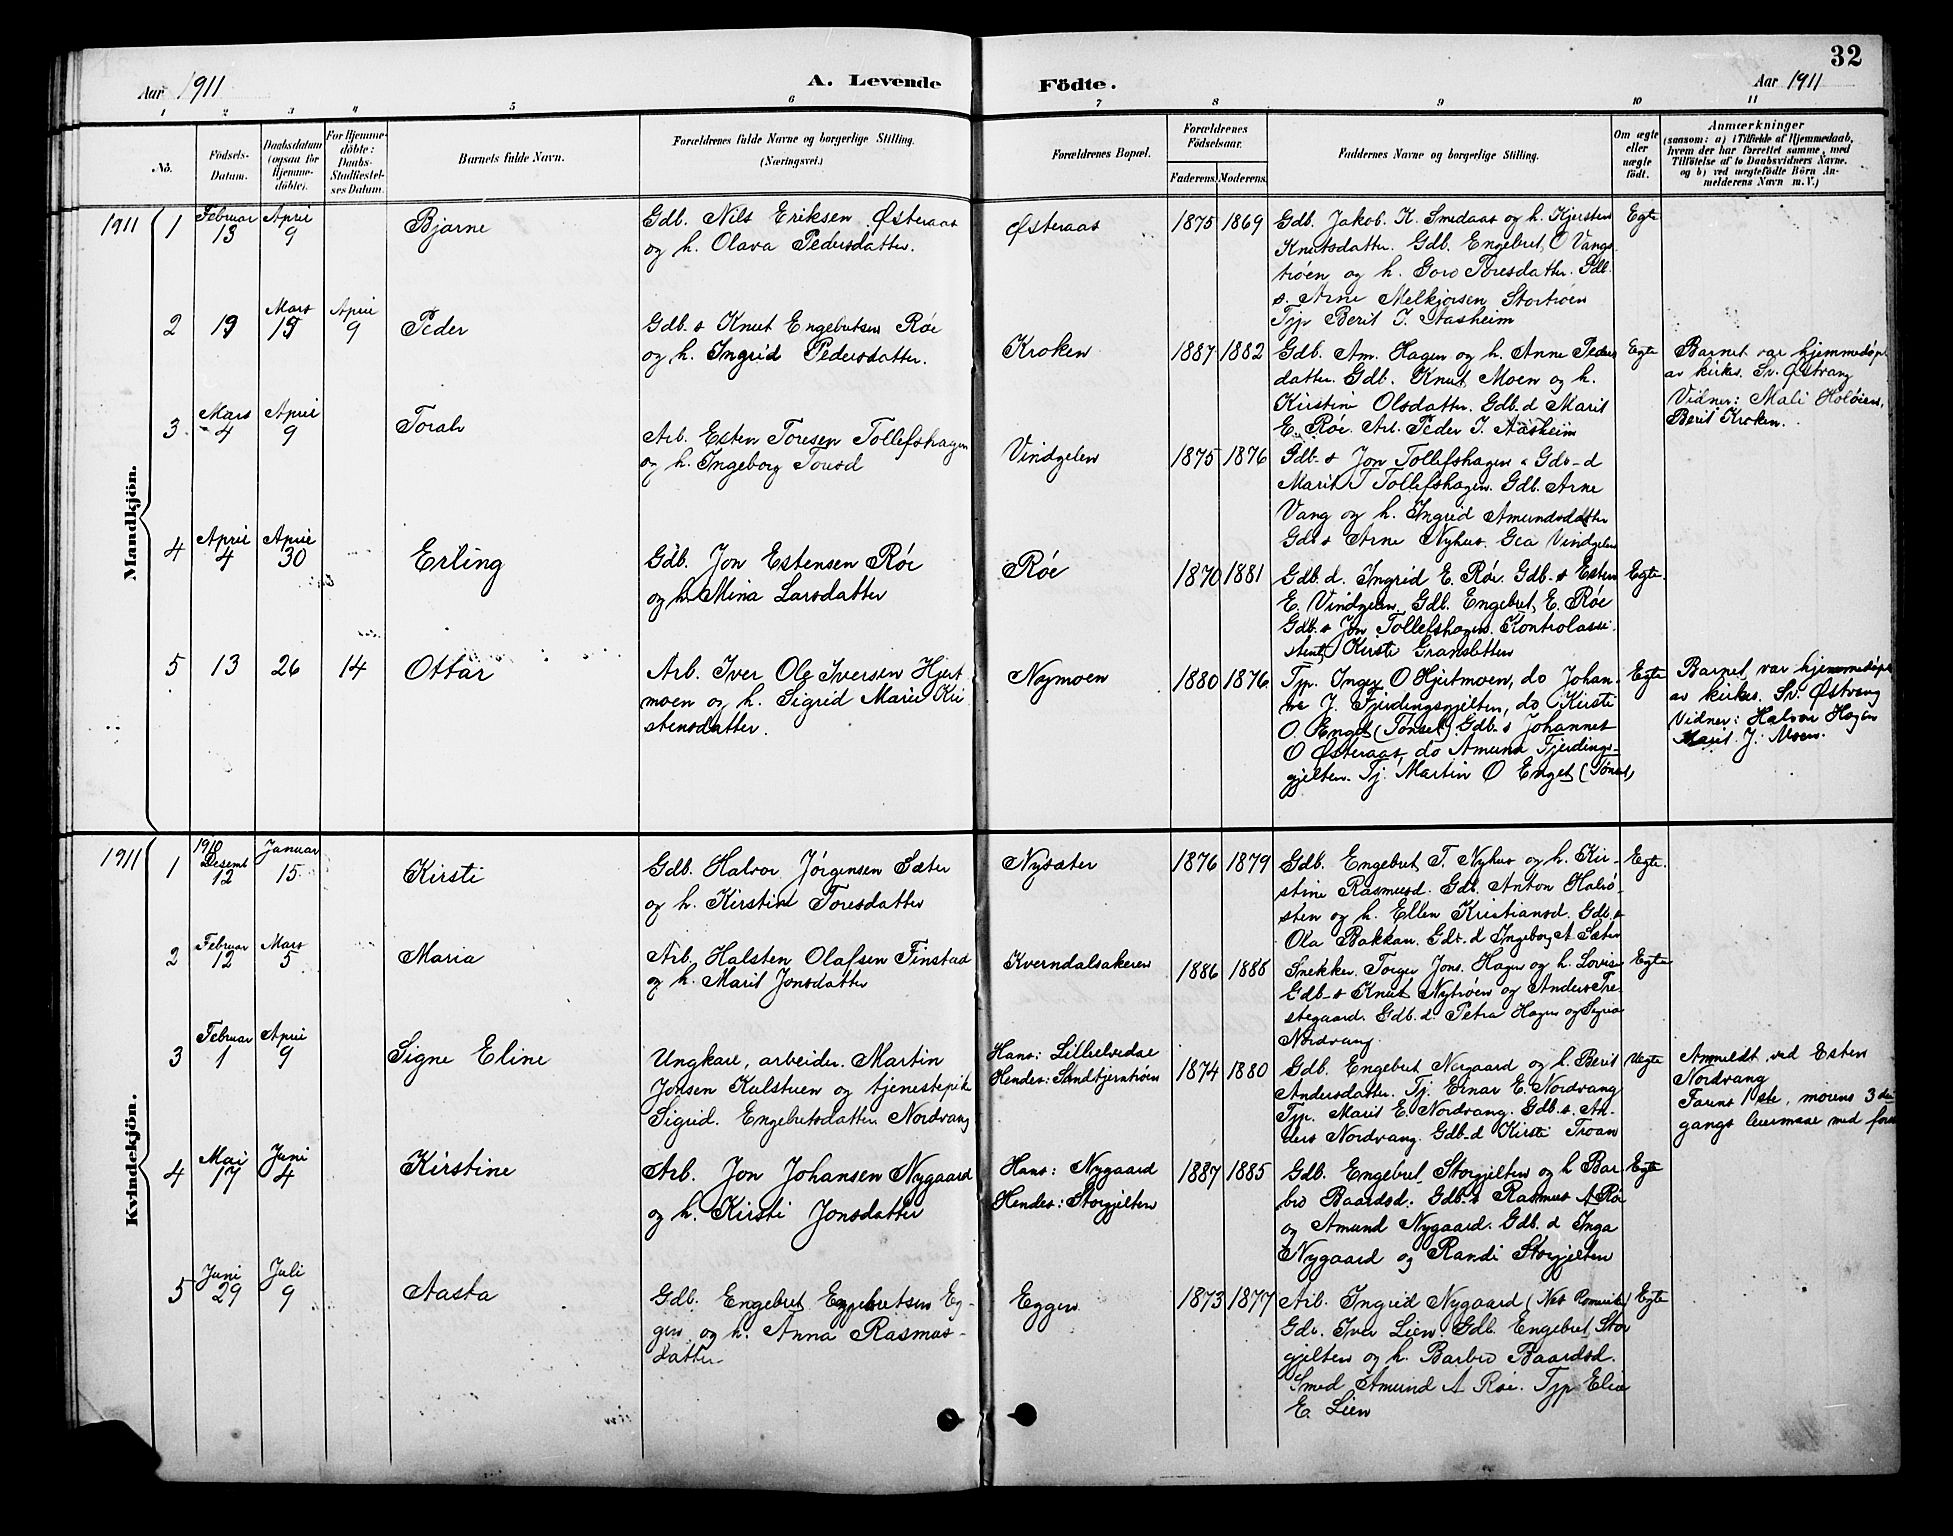 32
Aar 1911
A. Levende
Födte.
Aar 1911
1 2 3 4 5 6 7 8 9 10 11
No.
Födsels-
Datum.
Daabsdatum
(ogsaa for
Hjemme-
döbte).
For Hjemme-
döbte:
Daabs-
Stadfæstel-
ses Datum.
Barnets fulde Navn.
Forældrenes fulde Navne og borgerlige Stilling.
(Næringsvei.)
Forældrenes Bopæl.
Forældrenes
Födselsaar.
Faderens. Moderens.
Faddernes Navne og borgerlige Stilling.
Om ægte
eller
uægte
födt.
Anmærkninger
(saasom: a) i Tilfælde af Hjemmedaab,
hvem der har forrettet samme, med
Tilföielse af to Daabsvidners Navne.
og b) ved uægtefödte Börn An-
melderens Navn m. V.)
Mandkjön.
1911
1
Februar
13
April
9
Bjarne
Gdb. Nils Eriksen Østeraas
og h. Olava Pedersdatter.
Østeraas
1875 1869
Gdb. Jakob K. Smedaas og h. Kjersten
Knutsdatter. Gdb. Engebret O Vangs-
trøen og h. Goro Toresdatter. Gdb.
s. Arne Melkjorsen Stortrøen
Tjp Berit J. Aasheim
Egte
2
19
Mars
19
April
9
Peder
Gdb. s Knut Engebretsen Røe
og h. Ingrid Pedersdatter.
Kroken
1887 1882
Gdb. Am. Hagen og h. Anne Peders
datter. Gdb. Knut Moen og h.
Kirstine Olsdatter. Gdb. d Marit
E. Røe. Arb. Peder J. Aasheim
Egte
Barnet var hjemmedøpt
av kirkes. Sv. Østvang
Vidner: Mali Holøien,
Berit Kroken.
3
Mars
4
April
9
Toralv
Arb. Esten Toresen Tollefshagen
og h. Ingeborg Toresd
Vindgelen
1875 1876
Gdb-s Jon Tollefshagen Gdb-d
Marit T Tollefshagen. Gdb. Arne
Vang og h. Ingrid Amundsdatter
Gdb s Arne Nyhus. Vindgelen
4
April
4
April
30
Erling
Gdb. Jon Estensen Røe
og h. Mina Larsdatter
Røe
1870 1881
Gdb. d. Ingrid E. Røe. Gdb-s Esten
E. Vindgelen. Gdb. Engebret E. Røe
Gdb. s Jon Tollefshagen. Kontrolassi-
stent Kirsti Gransletten
Egte.
5
13
26
14
Ottar
Arb. Iver Ole Iversen Hjert
moen og h. Sigrid Marie Kri
stensdatter.
Nymoen
1880 1876
Tjp. Inger O Hjertmoen, do Johan-
ne J. Fjerdingsgjelten, do Kirsti
O. Enget (Tønset). Gdb-s Johannes
O Østeraas, do Amund Fjerdings-
gjelten. Tj. Martin O Enget (Tønset)
Egte
Barnet var hjemmedøpt
av kirkes. Sv. Østvang
Vidner: Halvor Hagen
Marit J. Moen.
Kvindekjön.
1911
1
1910
Desemb
12
Januar
15
Kirsti
Gdb. Halvor Jørgensen Sæter
og h. Kirstine Toresdatter
Nysæter
1876 1879
Gdb. Engebret T. Nyhus og h. Kir-
stine Rasmusd. Gdb. Anton Halvø-
sten og h. Ellen Kristiansd. Gdb. s
Ola Bakkan. Gdb. d Ingeborg A. Sæter
Egte.
2
Februar
12
Mars
5
Maria
Arb. Halsten Olafsen Finstad
og h. Marit Jonsdatter
Kverndalsakeren
1886 1885
Snekker. Torger Jons. Hagen og h. Lovise
Gdb-s Knut Nytrøen og Anders Tre-
stegaard. Gdb. d. Petra Hagen og Signe
Nordvang.
Egte
3
Februar
1
April
9
Signe Eline
Ungkare, arbeider. Martin
Jonsen Kulstuen og tjenestepike
Sigrid. Engebretsdatter. Nordvang
Hans: Lilleelvedal
Hendes: Sandtjerntrøen
1874 1880
Gdb. Engebret Norgaard og h. Berit
Andersdatter. Tj. Einar E. Nordvang
Tjp. Marit E. Nordvang. Gdb. s. An-
ders Nordvang. Gdb-d Kirsti Troan
Uegte
Anmeldt ved Esten
Nordvang
Farens 1ste, morens 3die
gangs leiermaal med
4
Mai
17
Juni
4
Kirstine
Arb. Jon Johansen Nygaard
og h. Kirsti Jonsdatter
Hans: Nygaard
Hendes: Storgjelten
1887 1885
Gdb. Engebret Storgjelten og h Bar-
bro Baardsd. Gdb. s Rasmus A Røe
og Amund Nygaard. Gdb. d Inga
Nygaard og Randi Storgjelten
Egte
5
Juni
29
Juli
9
Aasta
Gdb. Engebret Engebretsen Eg-
gen og h. Anna Rasmus-
datter
Eggen
1873 1877
Arb. Ingrid Nygaard
Gdb. Iver Lien. Gdb. Engebret Stor
gjelten og h. Barbro Baardsd.
Smed Amund A Røe. Tjp Elie
E. Lien
Egte